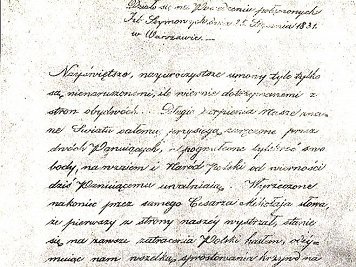 Działo się na Posiedzeniu połączonych
Izb Seymowych dnia 25 Stycznia 1831.
w Warszawie. —
Nayświętsze, nayuroczystsze umowy tyle tylko
są nienaruszonemi, ile wiernie dotrzymanemi z
stron obydwóch. Długie cierpienia Nasze zna-
ne Światu całemu, przysięgą zaręczone przez
dwóch Panujących, a pogwałcone tylekroć swo-
body, nawzaiem i Naród Polski od wierności
dziś Panuiącemu uwalniaią. Wyrzeczone
nakoniec przez samego Cesarza Mikołaja słowa,
że pierwszy z strony naszéy wystrzał, stanie
się na zawsze zatracenia Polski hasłem, odey-
muiąc nam wszelką sprostowania krzywd na-